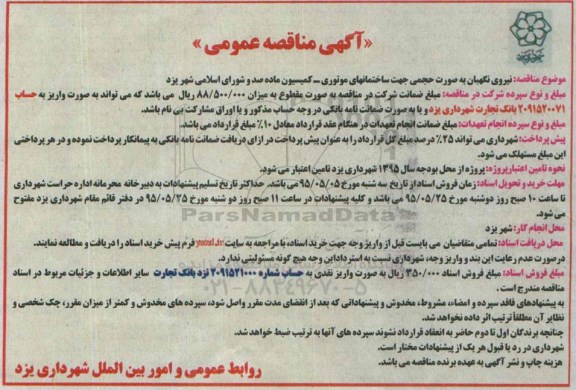 «آگهی مناقصه عمومی»
موضوع مناقصه: نیروی نگهبان به صورت حجمی جهت ساختمانهای موتوری ــ کمیسیون ماده صد و شورای اسلامی شهر یزد
مبلغ و نوع سپرده شرکت در مناقصه: مبلغ ضمانت شرکت در مناقصه به صورت مقطوع به میزان ۸۸/۵۰۰/۰۰۰ ریال می باشد که می تواند به صورت واریز به حساب
۲۰۹۱۵۲۰۰۷۱ بانک تجارت شهرداری یزد و یا به صورت ضمانت نامه بانکی در وجه حساب مذکور و یا اوراق مشارکت بی نام باشد.
مبلغ و نوع سپرده انجام تعهدات: مبلغ ضمانت انجام تعهدات در هنگام عقد قرارداد معادل ۱۰٪ مبلغ قرارداد می باشد.
پیش پرداخت: شهرداری می تواند ۲۵٪ درصد مبلغ کل قرارداد را به عنوان پیش پرداخت در ازای دریافت ضمانت نامه بانکی به پیمانکار پرداخت نموده و در هر پرداختی
این مبلغ مستهلک می شود.
نحوه تامین اعتبار پروژه: پروژه از محل بودجه سال ۱۳۹۵ شهرداری یزد تامین اعتبار می شود.
مهلت خرید و تحویل اسناد: زمان فروش اسناد از تاریخ سه شنبه مورخ ۹۵/۰۵/۰۵ می باشد. حداکثر تاریخ تسلیم پیشنهادات به دبیرخانه محرمانه اداره حراست شهرداری
تا ساعت ۱۰ صبح روز دوشنبه مورخ ۹۵/۰۵/۲۵ می باشد و کلیه پیشنهادات در ساعت ۱۱ صبح روز دو شنبه مورخ ۹۵/۰۵/۲۵ در دفتر قائم مقام شهرداری یزد مفتوح
می شود.
محل انجام کار: شهر یزد
محل دریافت اسناد: تمامی متقاضیان می بایست قبل از واریز وجه جهت خرید اسناد، با مراجعه به سایت yazd.ir فرم پیش خرید اسناد را دریافت و مطالعه نمایند.
درصورت عدم رعایت این بند و واریز وجه، شهرداری نسبت به استرداد این وجه هیچ گونه مسئولیتی ندارد.
مبلغ فروش اسناد: مبلغ فروش اسناد ۳۵۰/۰۰۰ ریال به صورت واریز نقدی به حساب شماره ۲۰۹۱۵۲۱۰۰۰ نزد بانک تجارت سایر اطلاعات و جزئیات مربوط در اسناد
مناقصه مندرج است.
به پیشنهادهای فاقد سپرده و امضاء، مشروط، مخدوش و پیشنهاداتی که بعد از انقضای مدت مقرر واصل شود، سپرده های مخدوش و کمتر از میزان مقرر، چک شخصی و
نظایر آن مطلقاً ترتیب اثر داده نخواهد شد.
چنانچه برندگان اول تا دوم حاضر به انعقاد قرارداد نشوند سپرده های آنها به ترتیب ضبط خواهد شد.
شهرداری در رد یا قبول هر یک از پیشنهادات مختار است.
هزینه چاپ و نشر آگهی به عهده برنده مناقصه می باشد.
روابط عمومی و امور بین الملل شهرداری یزد
ParsNamadData
۰۲۱-۸۸۳۴۹۶۷۰-۵